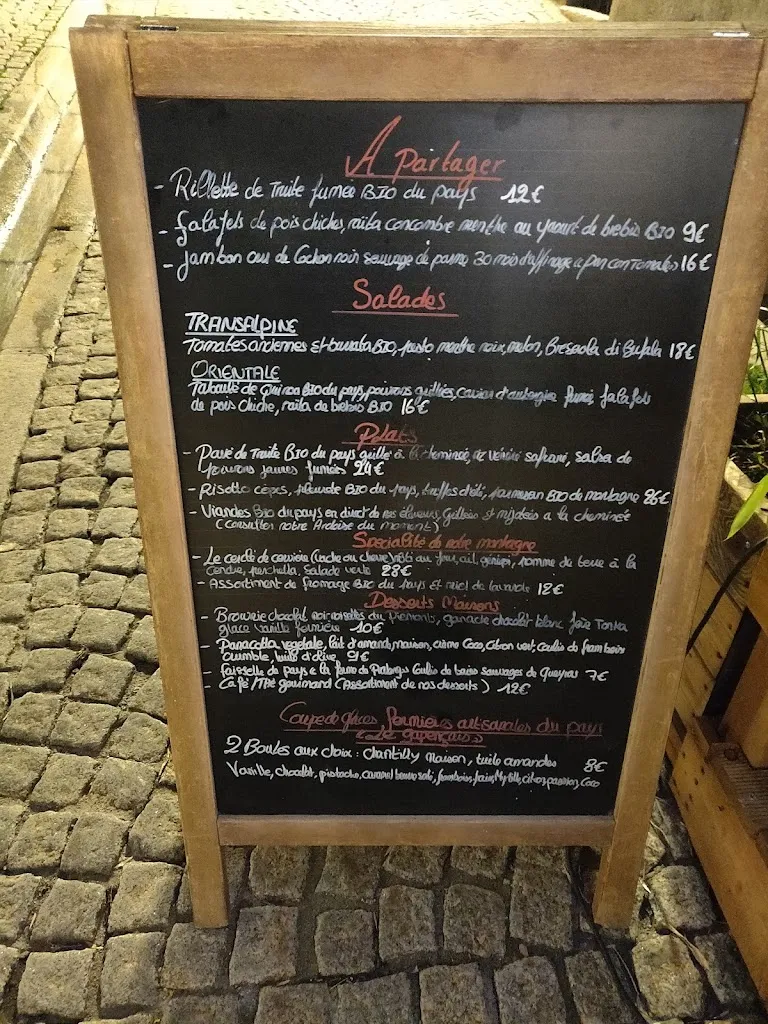 A Partager
- Rillette de Truite fumée BIO du pays 12€
- falafels de pois chiches, raïta concombre menthe au yaourt de brebis BIO 9€
- Jambon cru de Cochon noir sauvage de parme 30 mois d'affinage 16€
Salades
TRANSALPINE
Tomates anciennes et burrata BIO, pesto menthe noix, melon, Bresaola di Bufala 18€
ORIENTALE
Taboulé de Quinoa BIO du pays, poivrons grillés, caviar d'aubergine fumé, falafels
de pois chiche, raïta de brebis BIO 16€
Plats
- Pavé de Truite BIO du pays grillé à la cheminée, safrané, salsa de
poivrons jaunes fumés 24€
- Risotto cèpes, BIO du pays, truffes d'été, parmesan BIO de montagne 26€
- Viandes Bio du pays en direct de nos éleveurs, Grillées et mijotées a la cheminée
(consulter notre Ardoise du moment)
Spécialité de notre montagne
- Le (vache ou chèvre) rôti au four, ail, génépi, pomme de terre à la
cendre, salade verte 28€
- Assortiment de fromage BIO du pays et miel de lavande 12€
Desserts Maisons
- Brownie chocolat noir noisettes du Piemonte, ganache chocolat blanc fève Tonka
glace vanille fermière 10€
- Panacotta végétale, lait d'amande maison, crème Coco, citron vert, coulis de framboise
crumble, huile d'olive 9€
- faisselle de pays a la ferme de Coulis de baies sauvages du Queyras 7€
- Café/Thé gourmand (Assortiment de nos desserts) 12€
Coupe de glaces fermières artisanales du pays
2 Boules aux choix : chantilly maison, tuile amandes 8€
Vanille, chocolat, pistache, caramel beurre salé, framboise, fraise, Myrtille, citron, passion, Coco